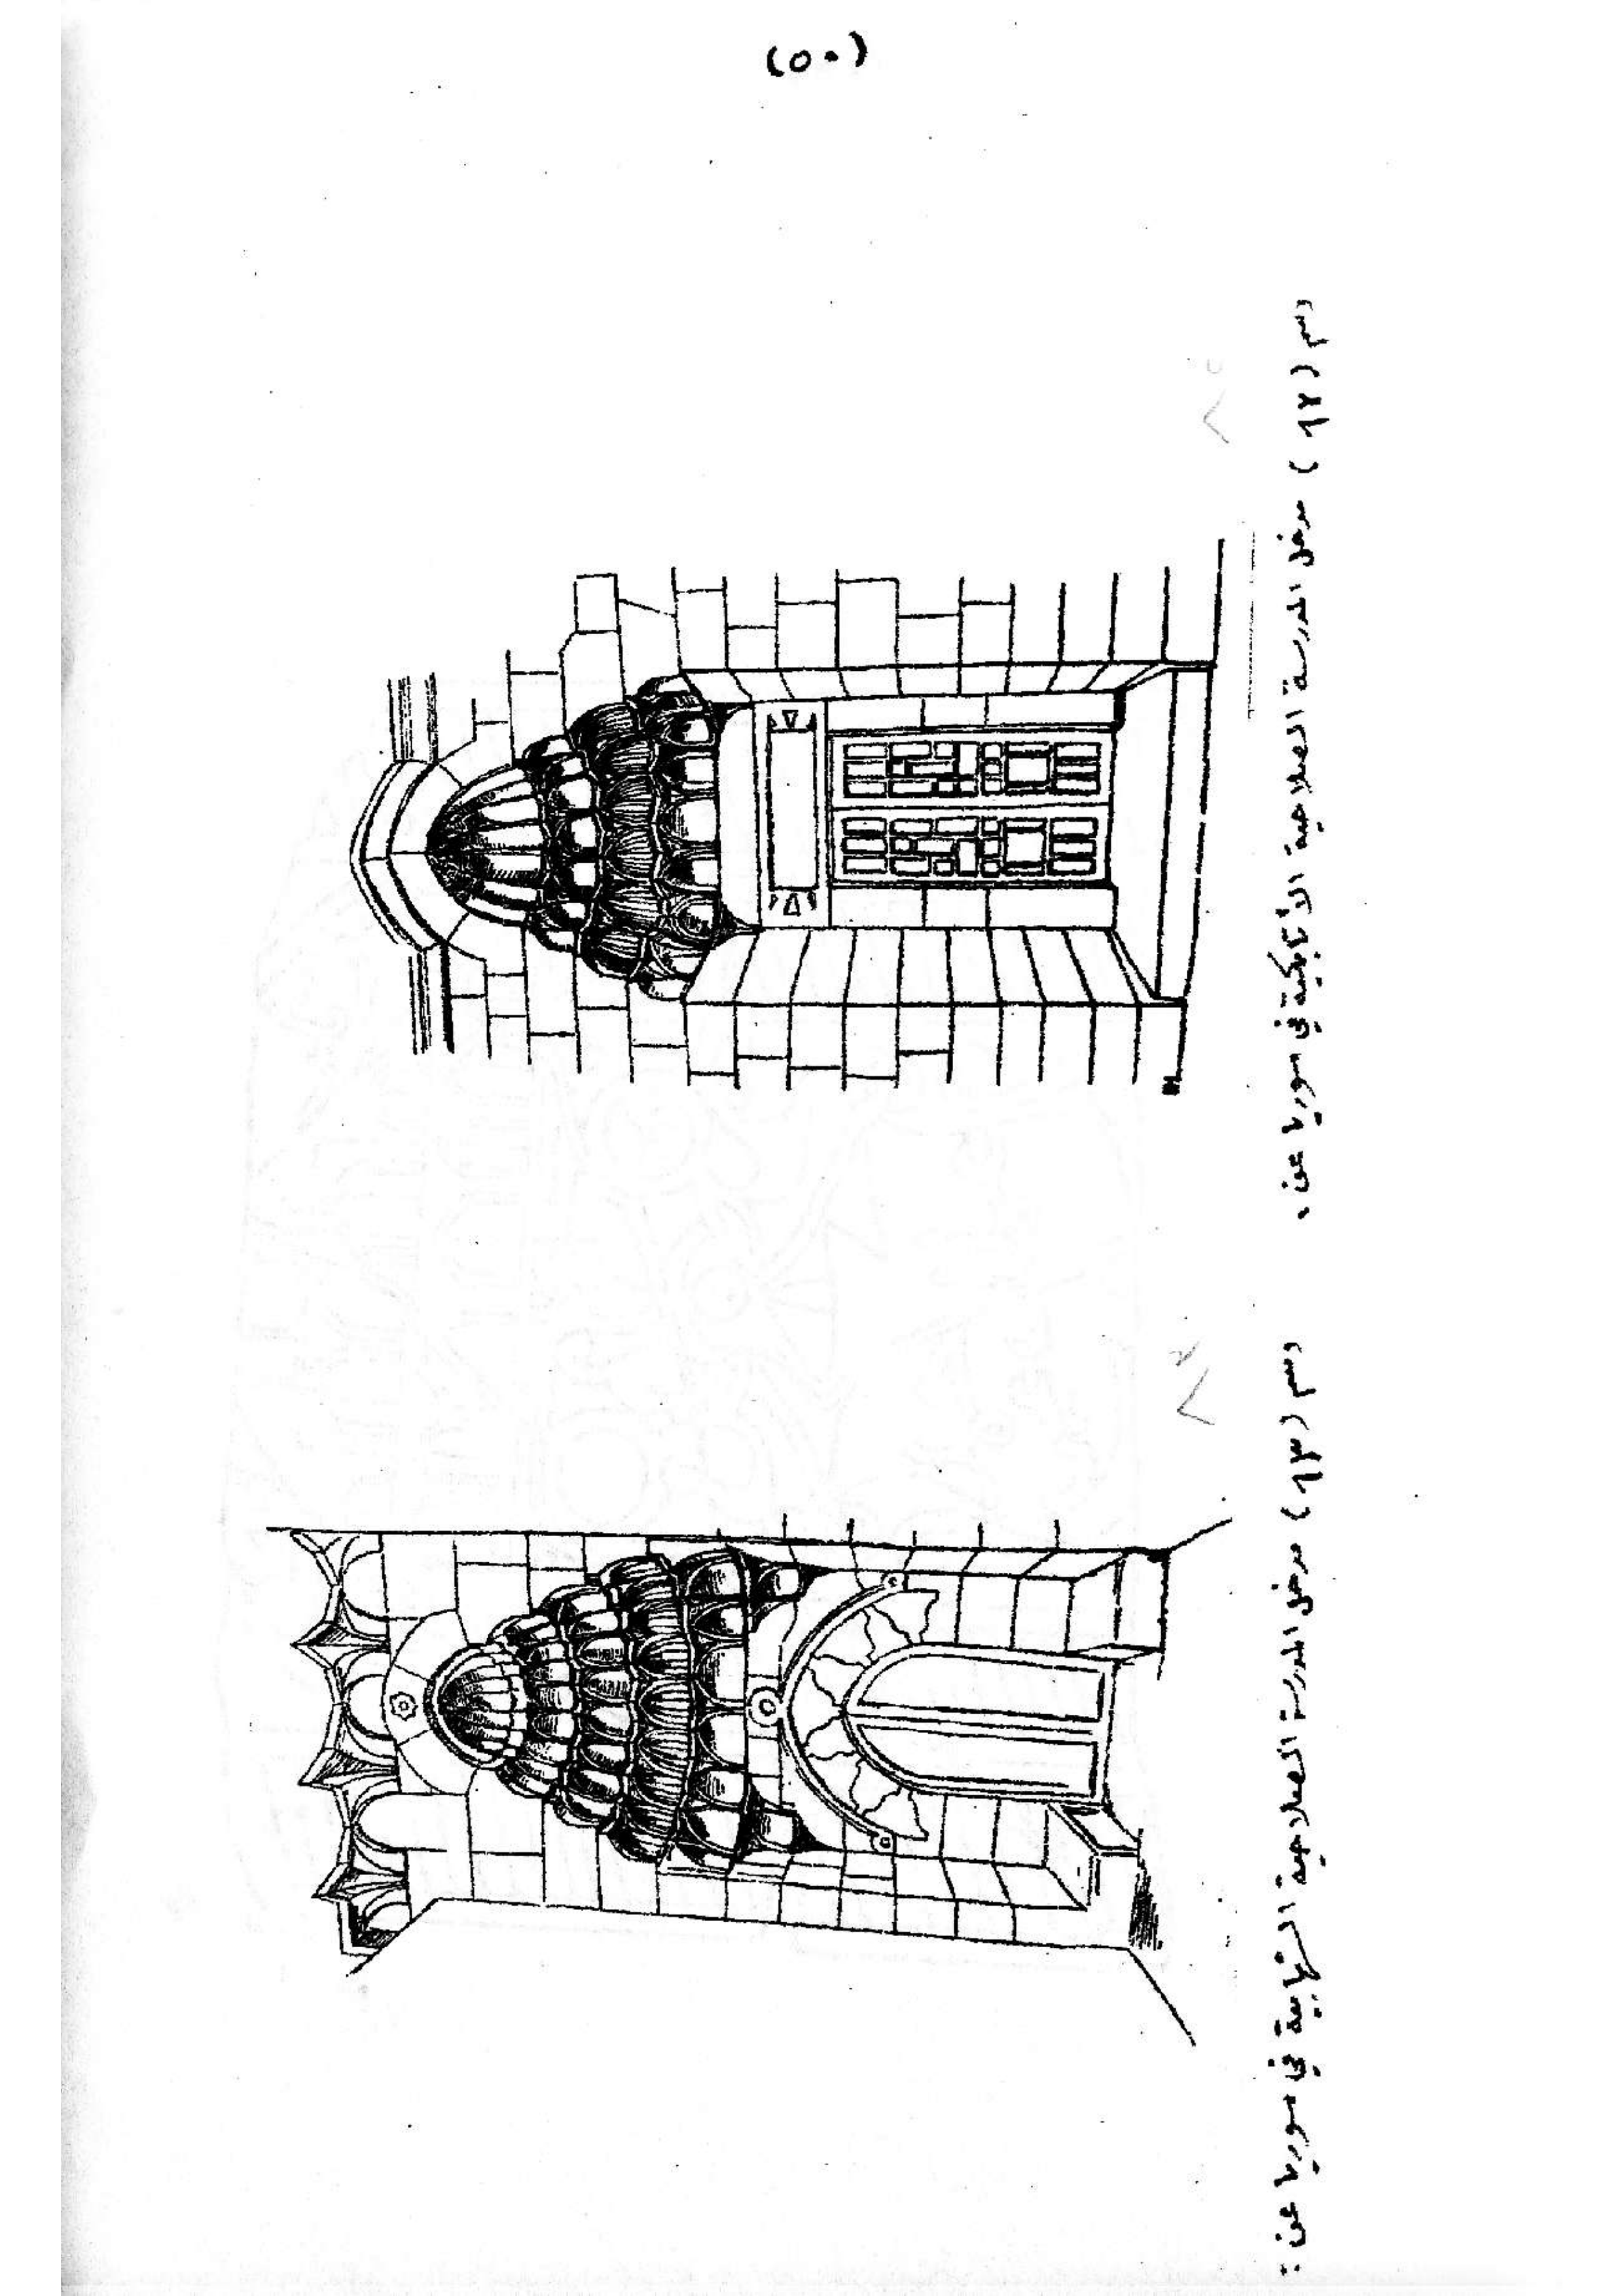 (٥٠)
رسم (٦٢) مدخل المدرسة الصلاحية الأتابكية في سوريا عن .
رسم (٦٣) مدخل المدرسة الصلاحية الشهابية في سوريا عن :